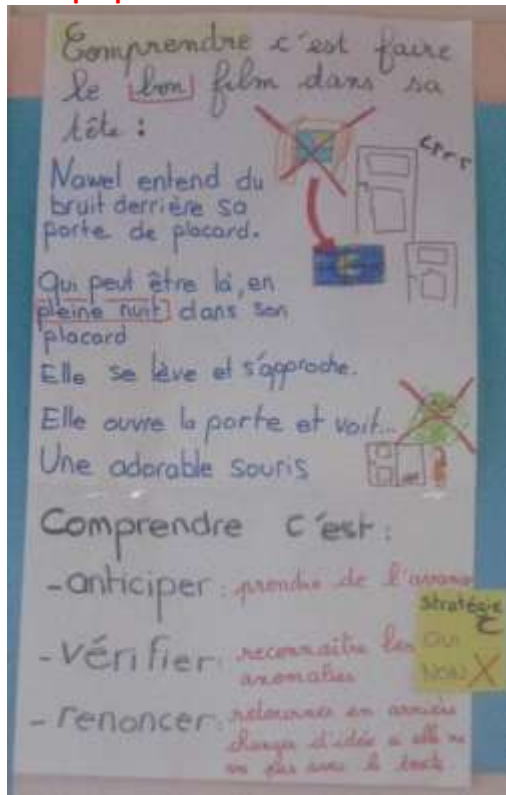 Comprendre c'est faire
le bon film dans sa
tête :
Nawel entend du
bruit derrière sa
porte de placard.
Qui peut être là, en
pleine nuit dans son
placard
Elle se lève et s'approche.
Elle ouvre la porte et voit...
Une adorable souris
Comprendre c'est :
- anticiper : prendre de l'avance
- vérifier : reconnaître les
anomalies
stratégie
OUI
NON X
- renoncer : retourner en arrière
changer d'idée si elle ne
va pas avec le texte